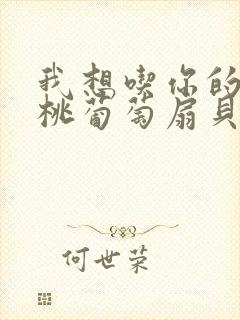 我想喫你的
桃葡萄扇貝
何世荣